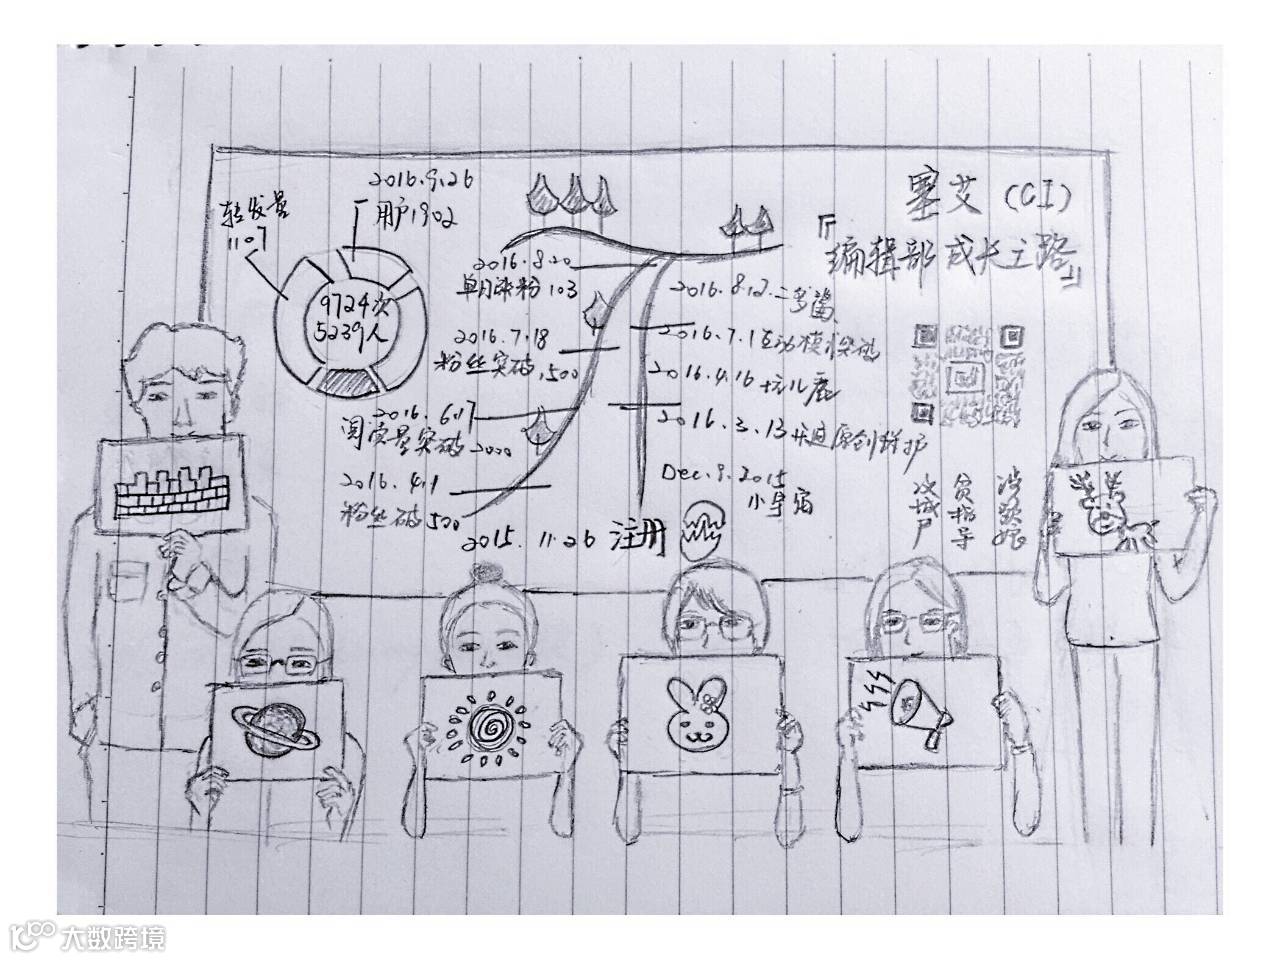 塞艾(CI)
『编辑部成长主路』
2016.9.26
用户1902
转发量
1107
9724次
5239人
2016.8.20
单月涨粉103
2016.7.18
粉丝突破1500
2016.6.17
阅读量突破2000
2016.4.1
粉丝破500
2015.11.26 注册
2016.8.12
2016.7.1互动模
2016.4.16
2016.3.13开通原创
Dec.9.2015
小星宿
指导
大数跨境